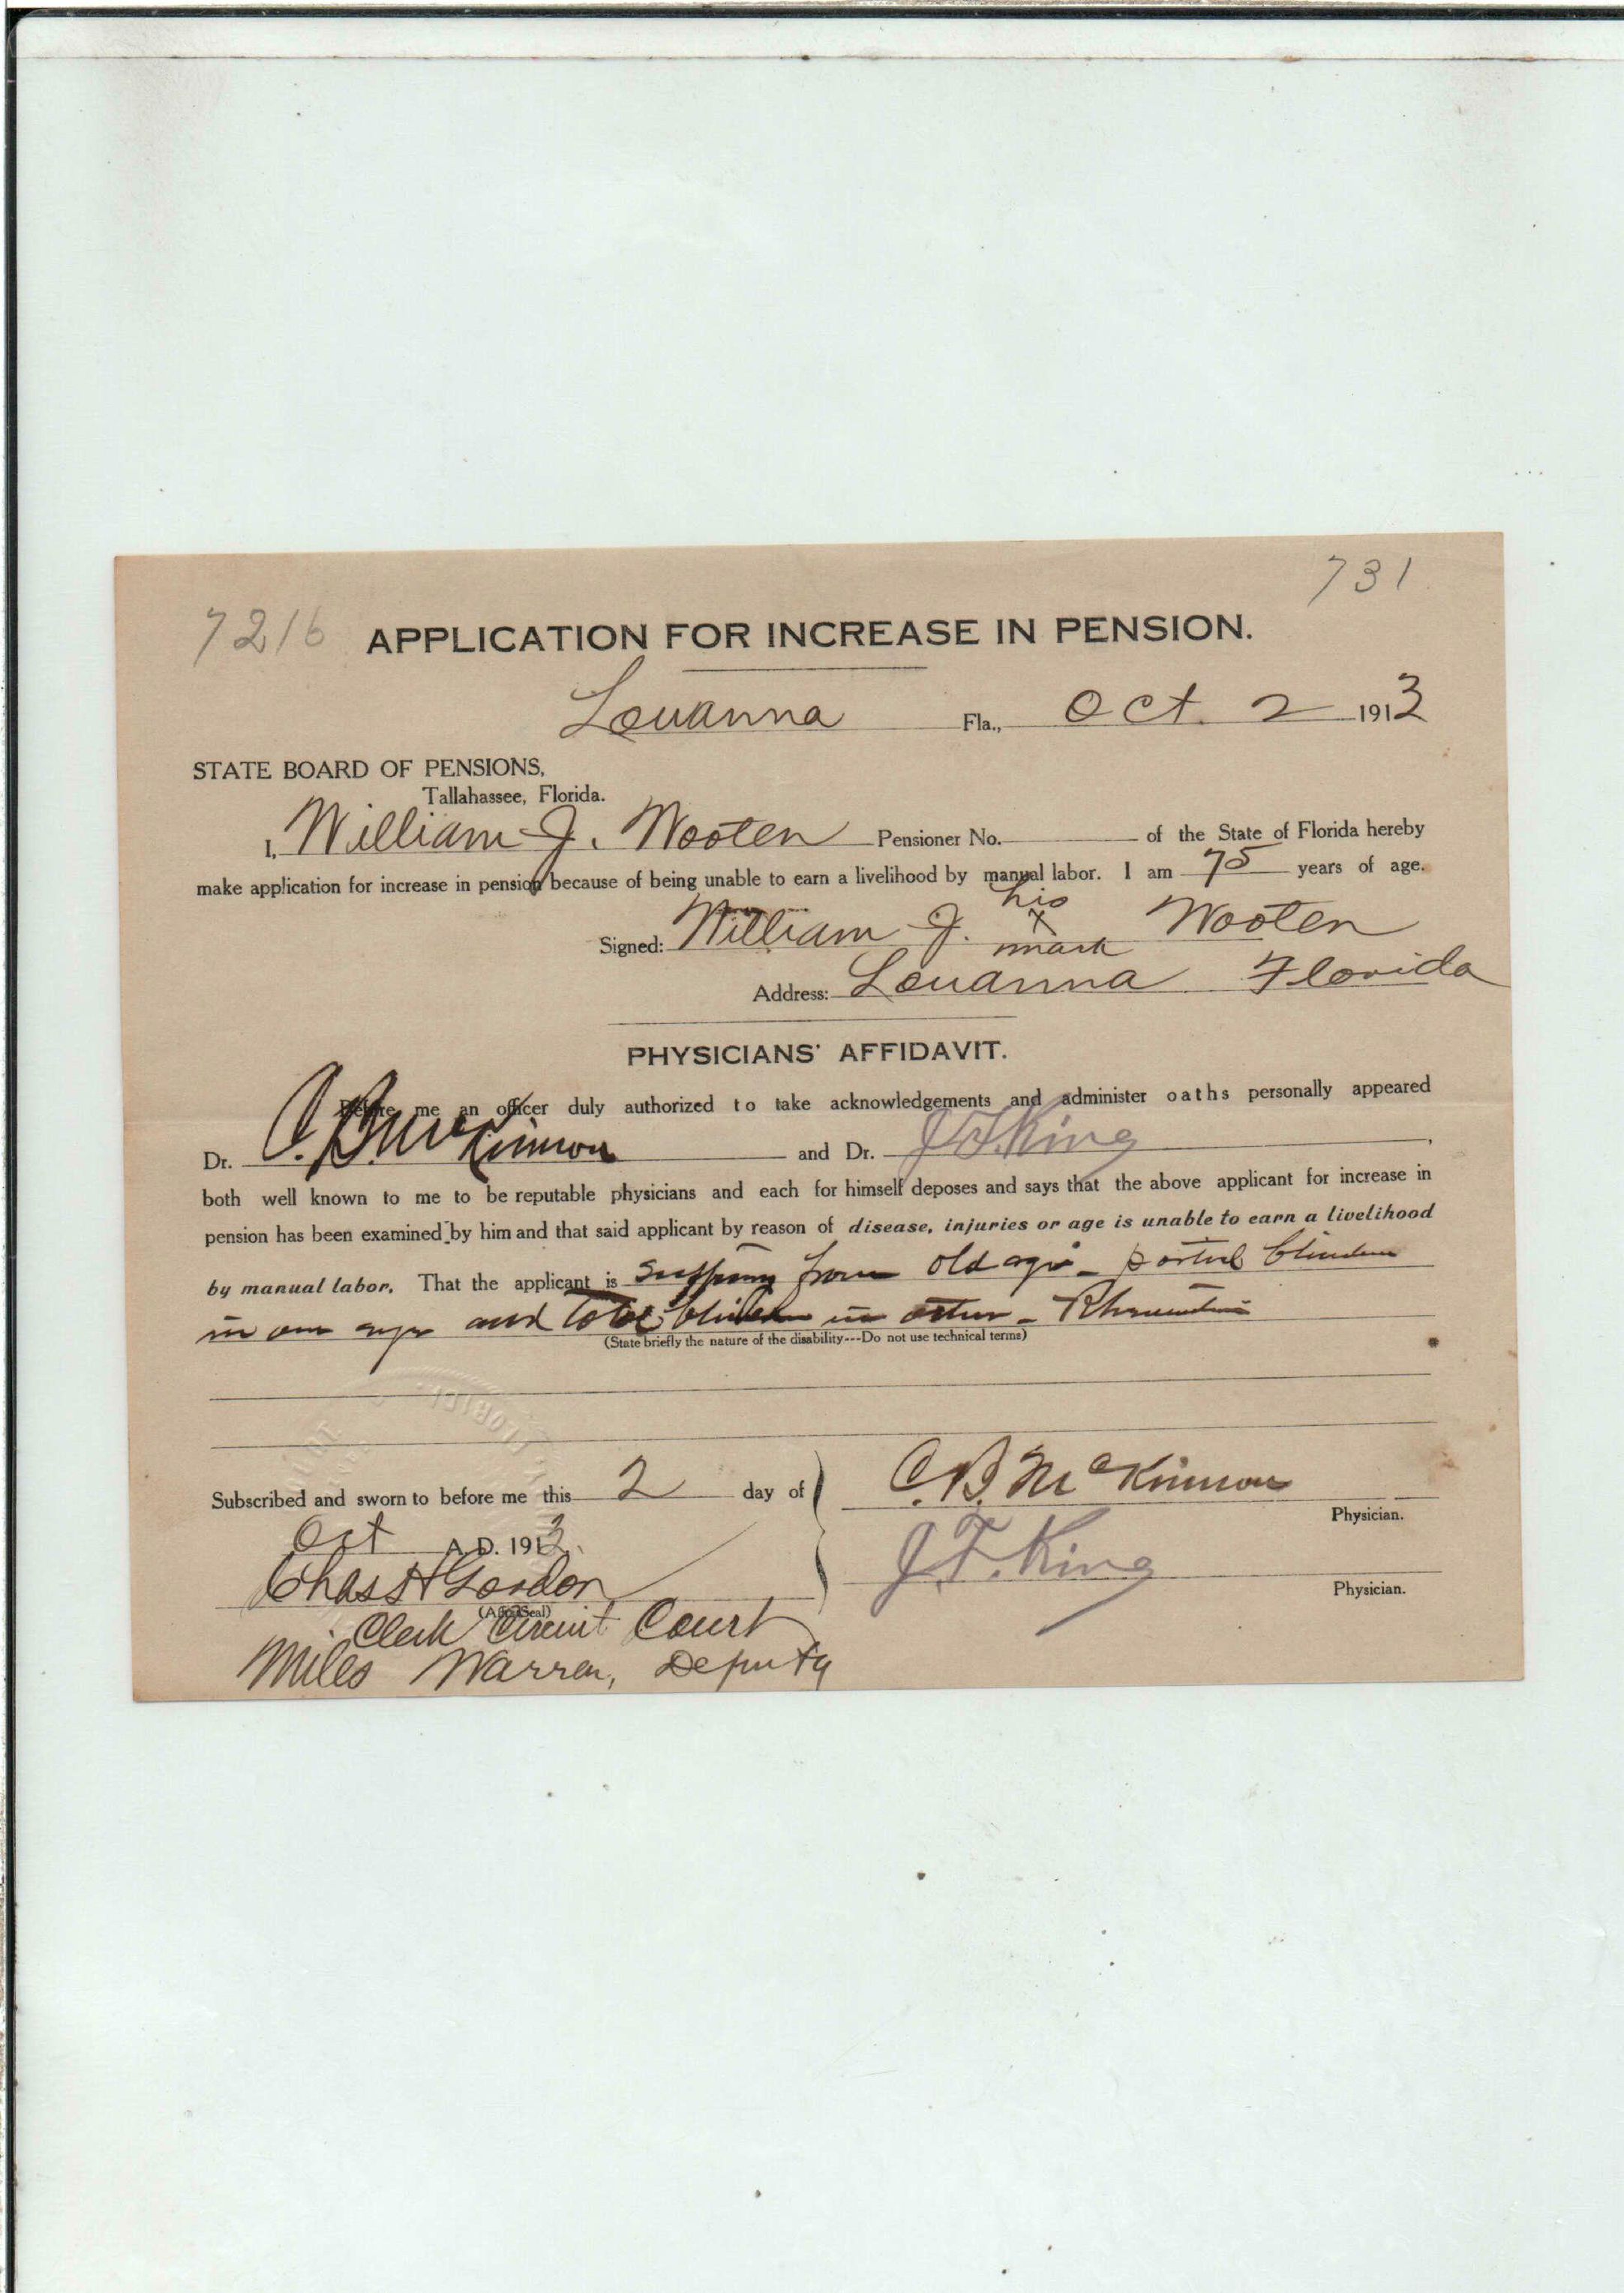 731
7216 APPLICATION FOR INCREASE IN PENSION.
Louanna Fla., Oct. 2 1913
STATE BOARD OF PENSIONS,
Tallahassee, Florida.
I, William J. Wooten Pensioner No. of the State of Florida hereby
make application for increase in pension because of being unable to earn a livelihood by manual labor. I am 75 years of age.
his
Signed: William J. x Wooten
mark
Address: Louanna Florida
PHYSICIANS' AFFIDAVIT.
Before me an officer duly authorized to take acknowledgements and administer oaths personally appeared
Dr. C. B. McKinnon and Dr. J. F. King,
both well known to me to be reputable physicians and each for himself deposes and says that the above applicant for increase in
pension has been examined by him and that said applicant by reason of disease, injuries or age is unable to earn a livelihood
by manual labor. That the applicant is suffering from old age - partial blindness
in one eye and total blindness in other - Rheumatism
(State briefly the nature of the disability---Do not use technical terms)
Subscribed and sworn to before me this 2 day of
Oct A. D. 1913.
C. B. McKinnon
Physician.
J. F. King
Physician.
Chas H Gordon
(Affix Seal)
Clerk Circuit Court
Miles Warren, Deputy